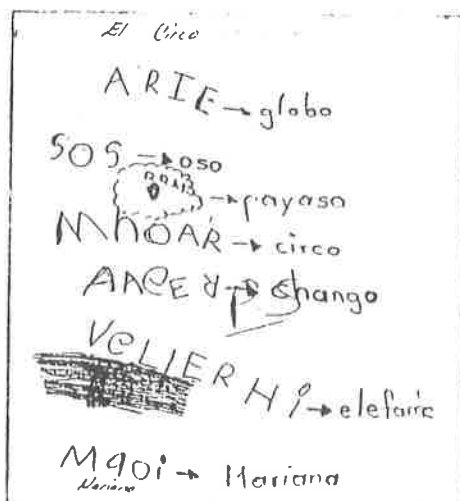 El Circo
ARIE → globo
SOS → oso
→ payaso
MhOAR → circo
→ chango
→ elefante
Mqoi → Mariana
Mariana